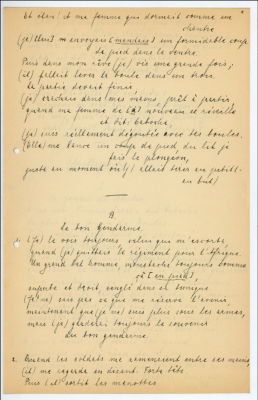 Et clen! et ma femme qui dormait comme un
chantre
(je) (lui) m'envoyer [menders] un formidable coup
de pied dans le ventre.
Puis dans mon rêve (je) vis une grande fois;
(il) fallait lever la boule dans son drou
la partie devait finir,
(je) cachais dans mes mains, prêt à partir
quand ma femme de nouveau se réveille
et dit: Caboche,
(je) suis réellement dégoûtée avec tes boules.
(Elle) me lance un coup de pied, du lit je
fais le plongeon,
juste au moment où (j') allais tirer au petit (-
en but)
B
Le bon Gendarme.
1. (Je) le vois toujours, celui qui m'escorta,
quand (je) quittais le régiment pour l'Afrique.
Un grand bel homme, moustache toujours comme
où [en pied]
superbe et droit, sanglé dans sa tunique
(Je ne) sais pas ce que me réserve l'avenir,
maintenant que (je) ne suis plus sous les armes,
mais (je) garderai toujours le souvenir
du bon gendarme.
2. Quand les soldats me ramenèrent entre ses mains,
(il) me regarda en disant: Forte tête
Puis (il) sortit les menottes